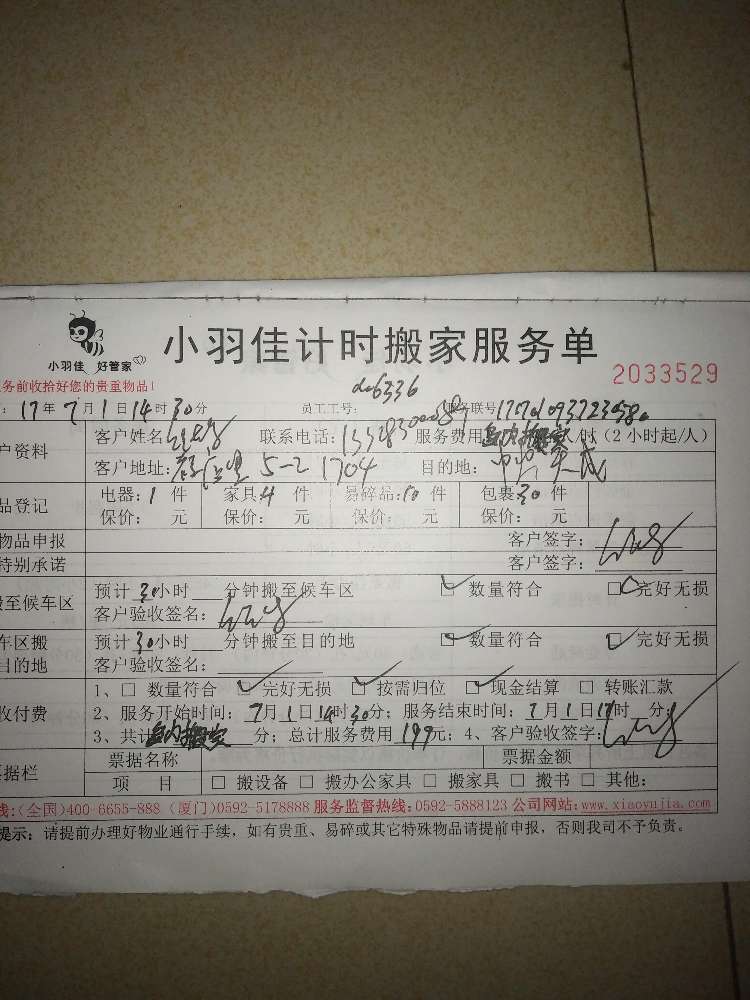 小羽佳 好管家
小羽佳计时搬家服务单
2033529
务前收拾好您的贵重物品！
: 17年7月1日14时30分 员工工号: 服务联号
户资料 客户姓名 联系电话: 服务费用 /时(2小时起/人)
客户地址: 5-2 1704 目的地:
品登记 电器:1件 家具4件 易碎品:10件 包裹30件
保价: 元 保价: 元 保价: 元 保价: 元
物品申报 客户签字:
特别承诺 客户签字:
搬至候车区 预计30小时 分钟搬至候车区 数量符合 完好无损
客户验收签名:
车区搬 预计30小时 分钟搬至目的地 数量符合 完好无损
目的地 客户验收签名:
收付费 1、 数量符合 完好无损 按需归位 现金结算 转账汇款
2、服务开始时间: 7月1日14时30分; 服务结束时间: 7月1日17时 分;
3、共计 分; 总计服务费用 199元; 4、客户验收签字:
据栏 票据名称 票据金额
项 目 搬设备 搬办公家具 搬家具 搬书 其他:
线:(全国)400-6655-888 (厦门)0592-5178888 服务监督热线:0592-5888123 公司网站:www.xiaoyujia.com
提示: 请提前办理好物业通行手续，如有贵重、易碎或其它特殊物品请提前申报，否则我司不予负责。